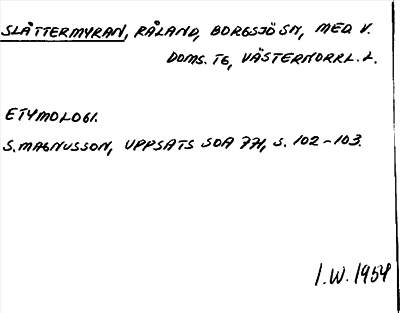 SLÅTTERMYRAN, RÅLAND, BORGSJÖ SN, MED V.
DOMS. TG, VÄSTERNORRL. L.
ETYMOLOGI.
S. MAGNUSSON, UPPSATS SOA 771, S. 102-103.
I.W. 1954